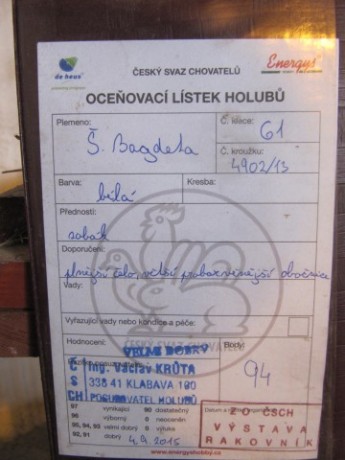 de heus
Energys
ČESKÝ SVAZ CHOVATELŮ
OCEŇOVACÍ LÍSTEK HOLUBŮ
Plemeno:
Š. Bagdeta
Č. klece:
61
Č. kroužku:
4902/13
Barva:
bílá
Kresba:
Přednosti:
zobák
Doporučení:
plnější čelo, větší probarvenější obočnice
Vady:
Vyřazující vady nebo kondice a péče:
ČESKÝ SVAZ CHOVATELŮ
Hodnocení:
VELMI DOBRÝ
Body:
94
Č Ing. Václav KRŮTA
S 338 41 KLABAVA 190
CH POSUZOVATEL HOLUBŮ
97 vynikající 90 dostatečný
96 výborný 0 neoceněn
95, 94, 93 velmi dobrý
92, 91 dobrý
4.9.2015
ZO ČSCH
VÝSTAVA
RAKOVNÍK
www.energyshobby.cz